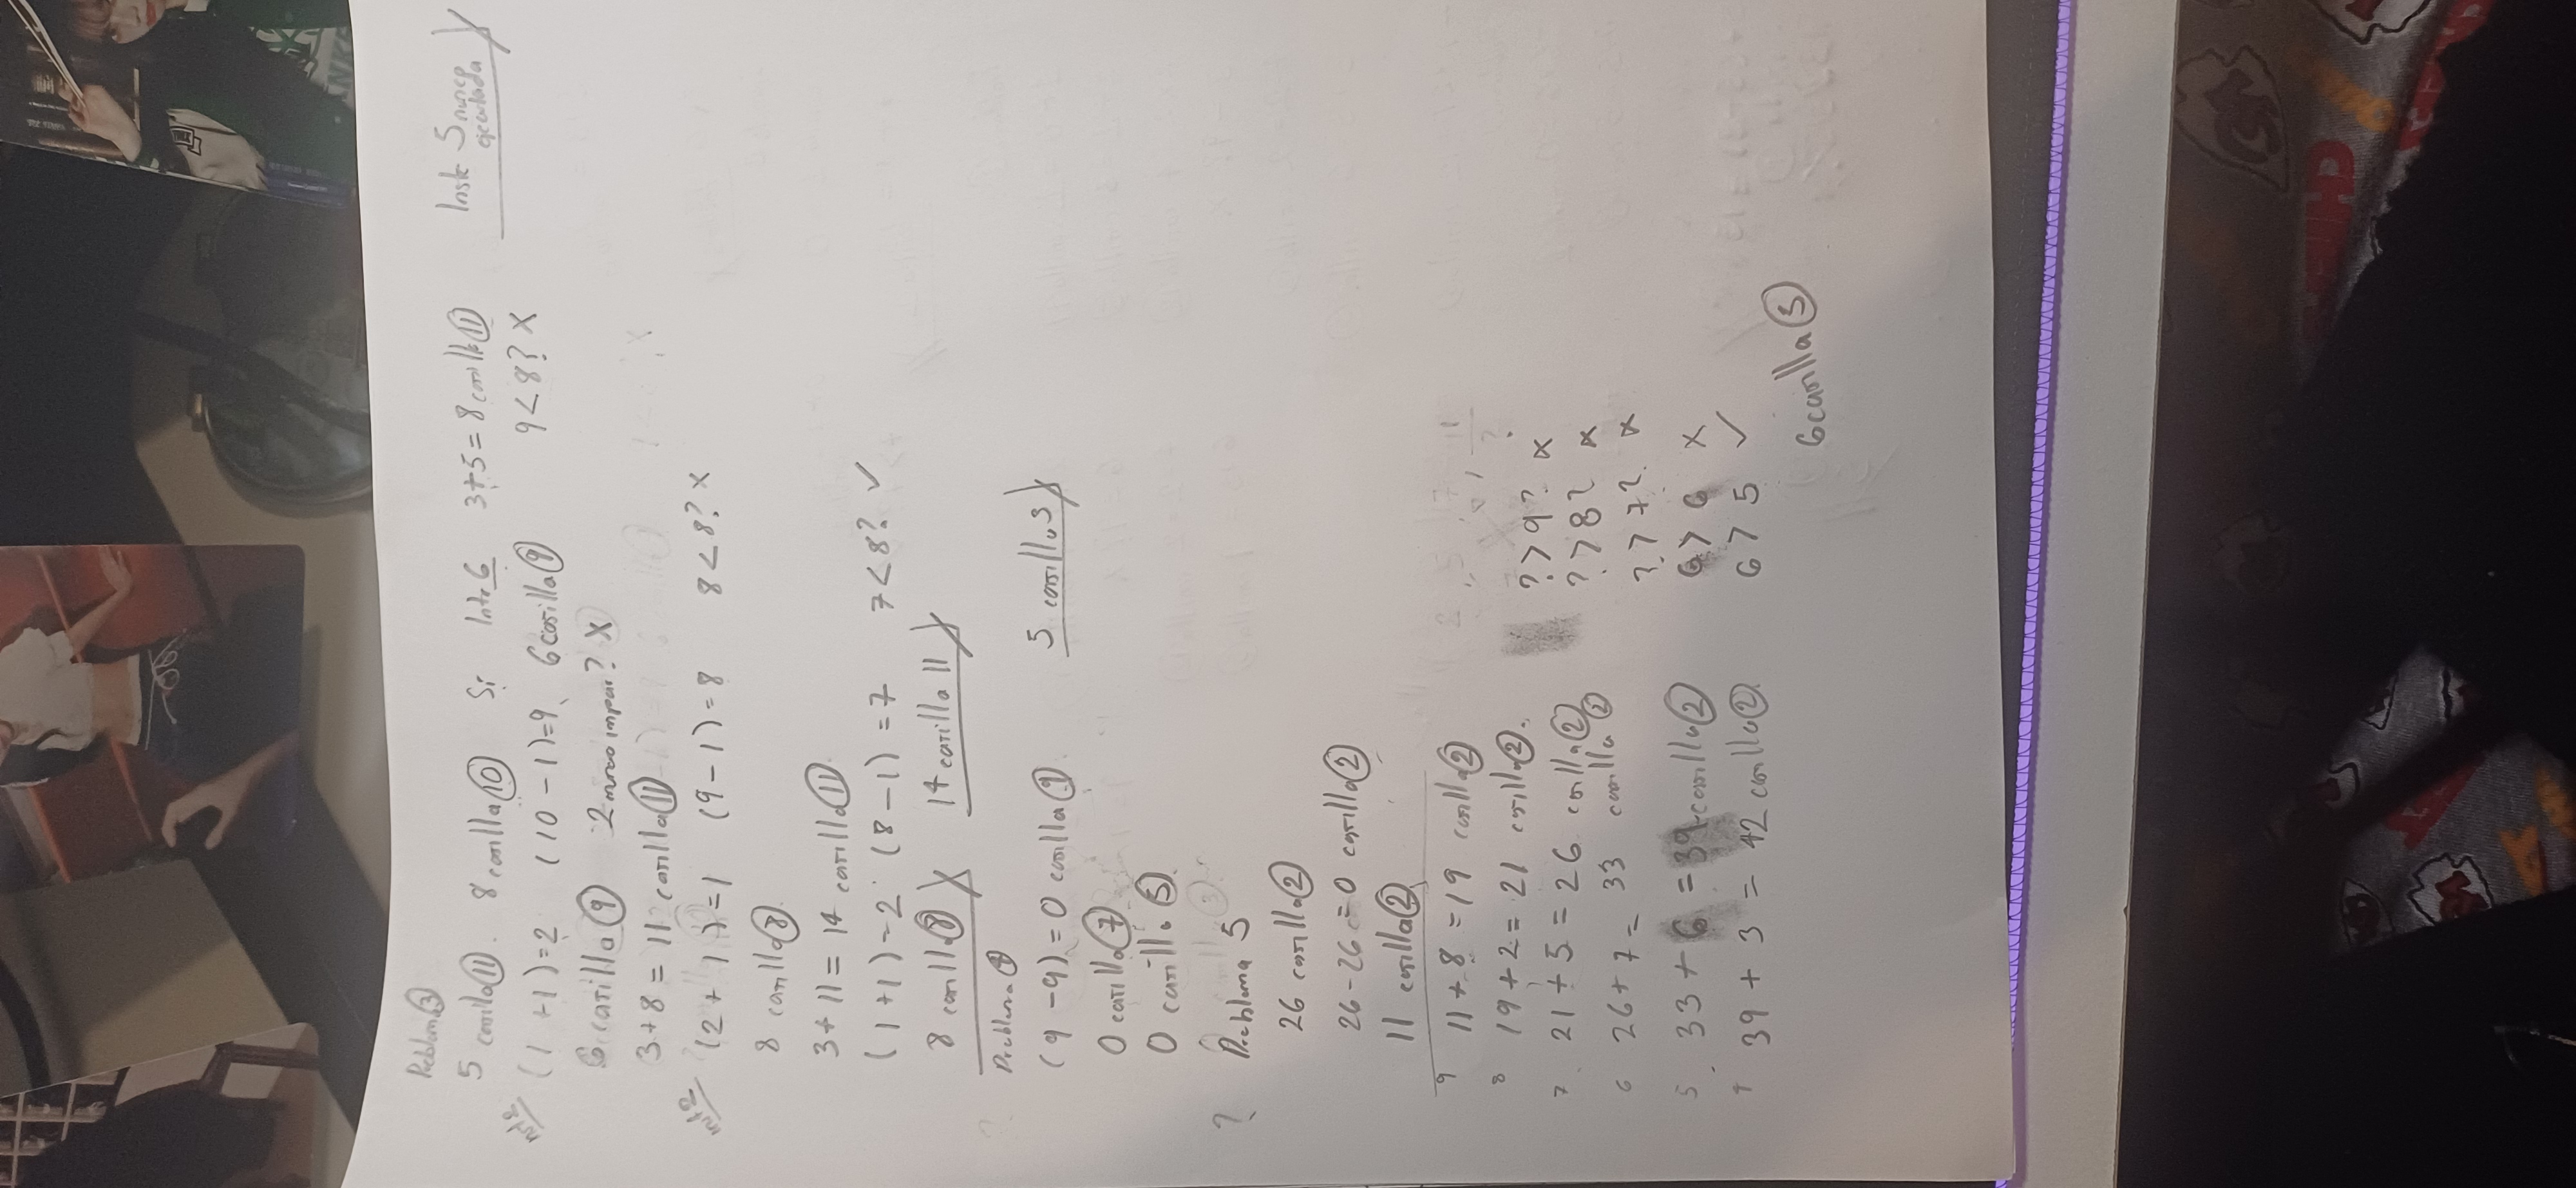 Problema ③
5 casilla ⑪. 8 casilla ⑩ Si Intr 6 3+5=8 casilla ⑪ Instr 5 nunca ejecutada
(1+1)=2 (10-1)=9 6 casilla ⑨ 9<8? X
6 casilla ⑨ 2 impar? X
3+8 = 11 casilla ⑪
(2+1)=1 (9-1)=8 8<8? X
8 casilla ⑧
3+11= 14 casilla ⑪
(1+1)=2 (8-1)=7 7<8? ✓
8 casilla ⑧ 14 casilla 11
Problema ④
(9-9)=0 casilla ⑨ 5 casilla 3
0 casilla ⑦
0 casilla ⑤
? Problema 5
26 casilla ②
26-26=0 casilla ②
11 casilla ②
9 11+8=19 casilla ②
8 19+2=21 casilla ②. ?>9? X
7 21+5=26 casilla ② ?>8? X
6 26+7= 33 casilla ② ?>7? X
5 33+6=39 casilla ② 6>6 X
4 39+3=42 casilla ② 6>5 ✓
6 casilla ⑤